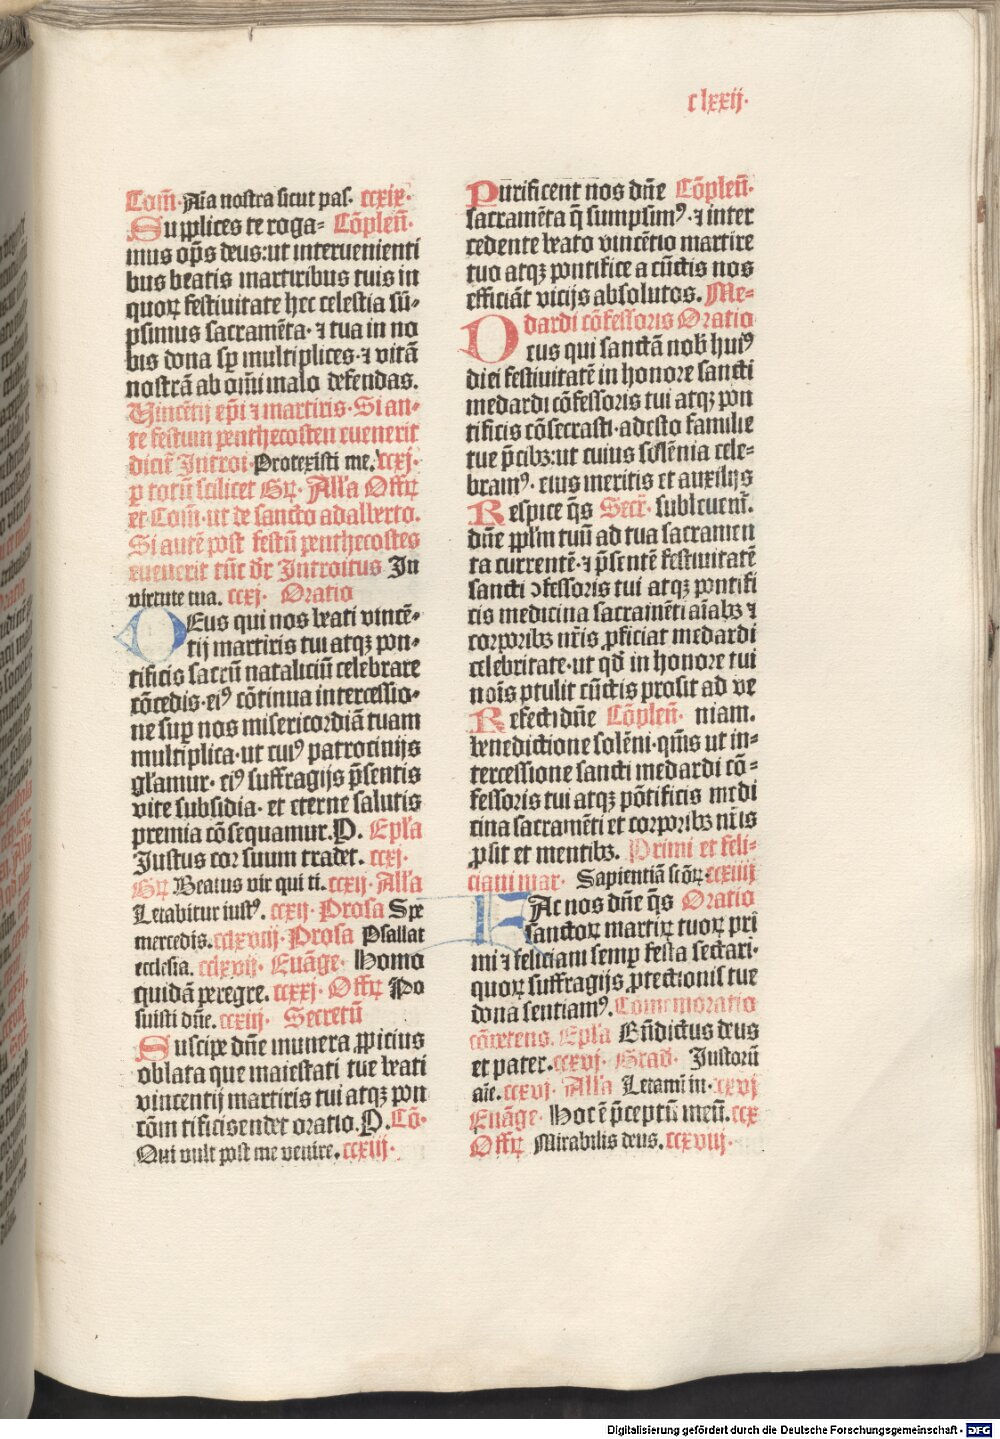 clxxij.
Com̄. Aīa nostra sicut pas. ccxix.
Supplices te roga- Cōplen̄.
mus op̄s deus: ut intervenienti
bus beatis martiribus tuis in
quoꝝ festiuitate hec celestia sū-
psimus sacramēta. ⁊ tua in no
bis dona sꝑ multiplices. ⁊ vitā
nostrā ab om̄i malo defendas.
Uincētij ep̄i ⁊ martiris. Si an-
te festum penthecosten euenerit
dicit͛ Introi. Protexisti me. ccxj.
ꝑ totū scilicet Gꝝ. All'a Offꝝ
et Com̄. ut de sancto adalberto.
Si autē post festū penthecostes
euenerit tūc dr̄ Introitus In
virtute tua. ccxj. Oratio
DEus qui nos beati vincē-
tij martiris tui atqꝫ pon-
tificis sacrū nataliciū celebrare
cōcedis. eiꝰ cōtinua intercessio-
ne suꝑ nos misericordiā tuam
multiplica. ut cuiꝰ patrocinijs
gl̄amur. eiꝰ suffragijs p̄sentis
vite subsidia. et eterne salutis
premia cōsequamur. P. Epl'a
Justus cor suum tradet. ccxj.
Gꝝ Beatus vir qui ti. ccxij. All'a
Letabitur iustꝰ. ccxij. Prosa Spē
mercedis. cclxviij. Prosa Psallat
ecclesia. cclxvij. Euāge. Homo
quidā peregre. ccxxj. Offꝝ Po
suisti dn̄e. ccxiij. Secretū
Suscipe dn̄e munera ꝓpicius
oblata que maiestati tue beati
vincentij martiris tui atqꝫ pon
cōm tificis endet oratio. P. Cō.
Qui vult post me venire. ccxiij.
Purificent nos dn̄e Cōplen̄.
sacramēta q̄ sumpsimꝰ. ⁊ inter
cedente beato vincētio martire
tuo atqꝫ pontifice a cūctis nos
efficiāt vicijs absolutos. Me-
dardi cōfessoris Oratio
Deus qui sanctā nob̄ huiꝰ
diei festiuitatē in honore sancti
medardi cōfessoris tui atqꝫ pon
tificis cōsecrasti. adesto familie
tue p̄cibꝫ: ut cuius sollēnia cele-
bramꝰ. eius meritis et auxilijs
Respice q̄s Secr̄. subleuem̄.
dn̄e ppl̄m tuū ad tua sacramen
ta currentē. ⁊ p̄sentē festiuitatē
sancti ɔfessoris tui atqꝫ pontifi
cis medicina sacramēti aīabꝫ ⁊
corporibꝫ nr̄is ꝓficiat medardi
celebritate. ut qd̄ in honore tui
noīs ꝑtulit cūctis prosit ad ve
Refecti dn̄e Cōplen̄. niam.
benedictione solēni. q̄m̄s ut in-
tercessione sancti medardi cō-
fessoris tui atqꝫ pōtificis medi
cina sacramēti et corporibꝫ nr̄is
ꝓsit et mentibꝫ. Primi et feli-
ciani mar. Sapientiā scōꝝ. ccxiiij
FAc nos dn̄e q̄s Oratio
sanctoꝝ martiꝝ tuoꝝ pri
mi ⁊ feliciani semꝑ festa sectari.
quoꝝ suffragijs ꝓtectionis tue
dona sentiamꝰ. Cōmemoratio
Epl'a Bn̄dictus deus
et pater. ccxvj. Grad. Justorū
aīe. ccxvj. All'a Letamī in. ccxvj
Euāge. Hoc ē p̄ceptū meū. ccx
Offꝝ Mirabilis deus. ccxviij.
Digitalisierung gefördert durch die Deutsche Forschungsgemeinschaft - DFG